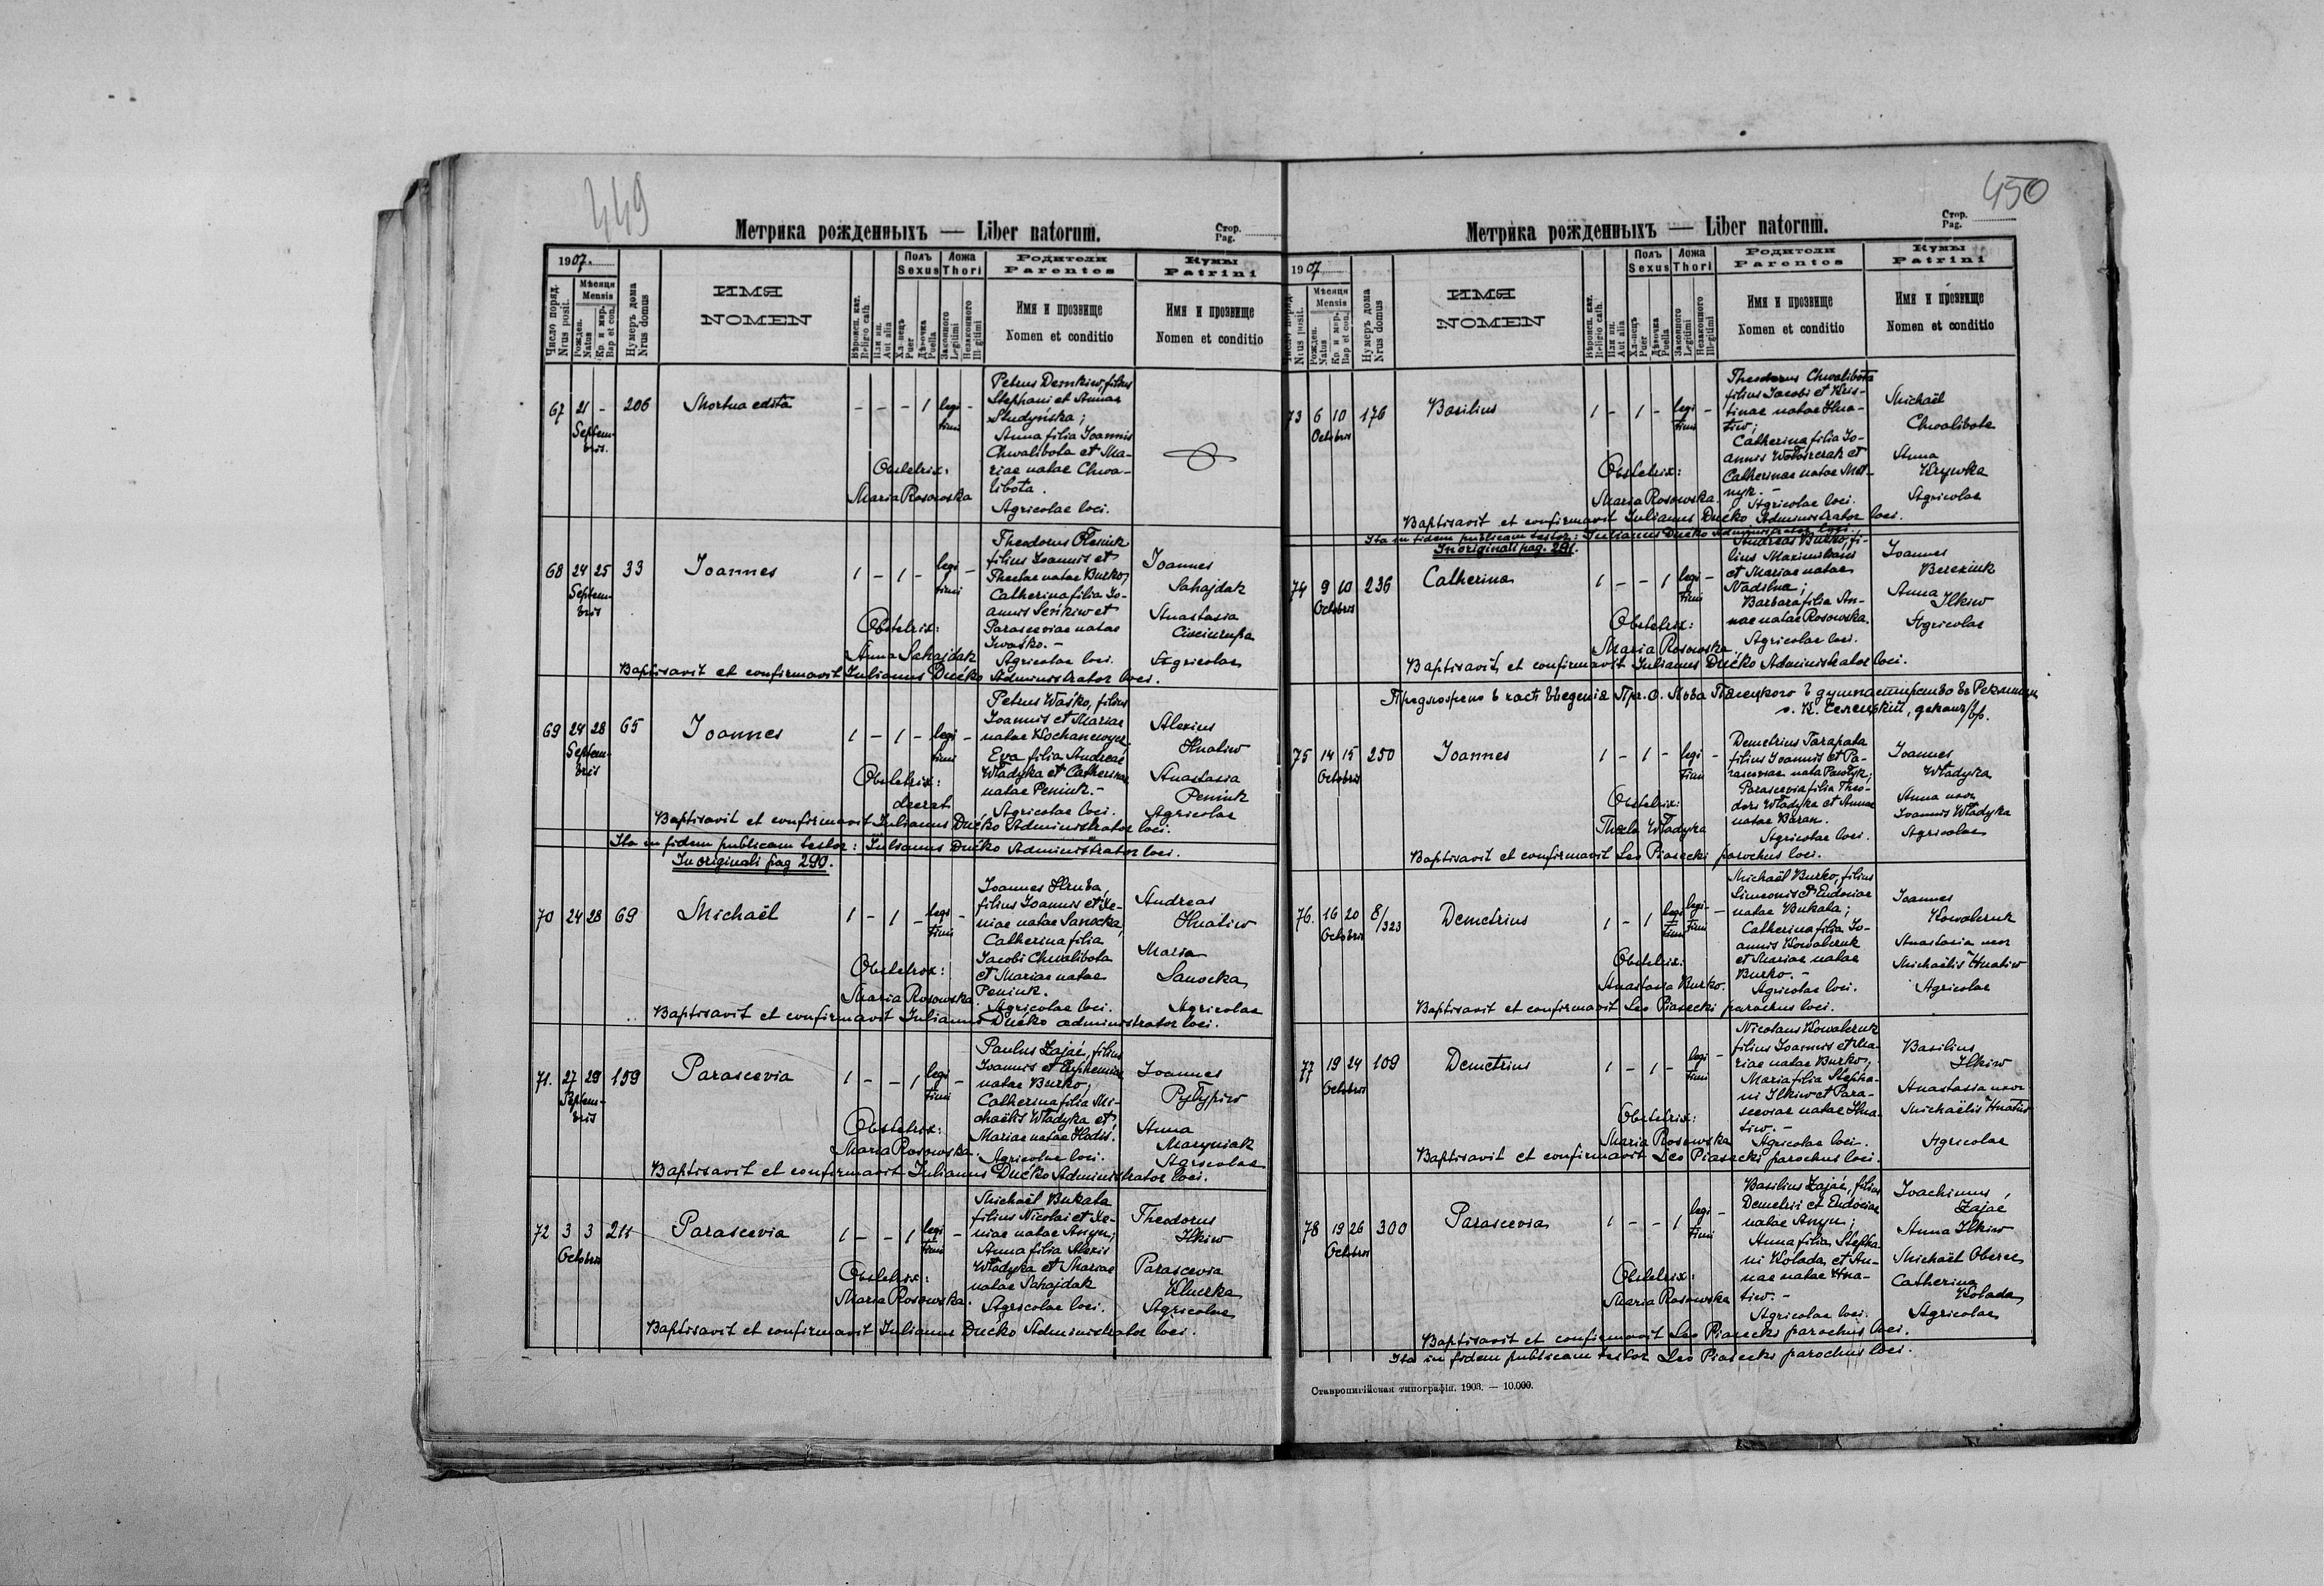 449
Метрика рожденныхъ — Liber natorum.
Стор.
Pag.
1907.
Число поряд.
Nrus posit.
Мѣсяця
Mensis
Рожден.
Natus
Кр. и мѵр.
Bap et con.
Нумеръ дома
Nrus domus
ИМЯ
NOMEN
Вѣроисп. кат.
Religio cath.
Или ин.
Aut alia
Полъ
Sexus
Хл-вецъ
Puer
Дѣвочка
Puella
Ложа
Thori
Законного
Legitimi
Незаконного
Illegitimi
Родители
Parentes
Имя и прозвище
Nomen et conditio
Кумы
Patrini
Имя и прозвище
Nomen et conditio
67 21 - 206 Mortua edita - - - 1 legi -
Septem- timi
bris.
Petrus Demkiw, filius
Stephani et Annae
Studyńska;
Anna filia Joannis
Chwalibota et Ma-
riae natae Chwa-
libota.
Agricolae loci.
Obstetrix:
Maria Rosowska
68 24 25 33 Joannes 1 - 1 - legi -
Septem- timi
bris
Theodorus Oleniuk
filius Joannis et
Theclae natae Burko,
Catherina filia Jo-
annis Seńkiw et
Parasceviae natae
Iwaśko. -
Agricolae loci.
Joannes
Sahajdak
Anastasia
Agricolae
Obstetrix:
Anna Sahajdak
Baptisavit et confirmavit Julianus Dućko Administrator loci.
69 24 28 65 Joannes 1 - 1 - legi -
Septem- timi
bris
Petrus Waśko, filius
Joannis et Mariae
natae
Eva filia Andreae
Władyka et Catherinae
natae Peniuk. -
Agricolae loci.
Alexius
Hnatiw
Anastasia
Peniuk
Agricolae
Obstetrix:
deerat
Baptisavit et confirmavit Julianus Dućko Administrator loci.
Ita in fidem publicam testor: Julianus Dućko Administrator loci.
In originali pag 290.
70 24 28 69 Michaël 1 - 1 - legi -
timi
Joannes Hruba,
filius Joannis et Xe-
niae natae Sanocka,
Catherina filia
Jacobi Chwalibota
et Mariae natae
Peniuk.
Agricolae loci.
Andreas
Hnatiw
Maria
Sanocka
Agricolae
Obstetrix:
Maria Rosowska.
Baptisavit et confirmavit Julianus Dućko administrator loci.
71. 27 29 159 Parascevia 1 - - 1 legi -
Septem- timi
bris
Paulus Zajać, filius
Joannis et Euphemiae
natae Burko;
Catherina filia Mi-
chaëlis Władyka et
Mariae natae Hodis.
Agricolae loci.
Joannes
Pyłypiw
Anna
Maryniak
Agricolae
Obstetrix:
Maria Rosowska.
Baptisavit et confirmavit Julianus Dućko Administrator loci.
72 3 3 211 Parascevia 1 - - 1 legi -
Octobris timi
Michaël Bukata
filius Nicolai et Xe-
niae natae Ansyn;
Anna filia Alexii
Władyka et Mariae
natae Sahajdak
Agricolae loci.
Theodorus
Ilkiw
Parascevia
Kluczka
Agricolae
Obstetrix:
Maria Rosowska.
Baptisavit et confirmavit Julianus Dućko Administrator loci.
450
Метрика рожденныхъ — Liber natorum.
Стор.
Pag.
1907
Nrus posit.
Мѣсяця
Mensis
Рожден.
Natus
Кр. и мѵр.
Bap et con.
Нумеръ дома
Nrus domus
ИМЯ
NOMEN
Вѣроисп. кат.
Religio cath.
Или ин.
Aut alia
Полъ
Sexus
Хл-вецъ
Puer
Дѣвочка
Puella
Ложа
Thori
Законного
Legitimi
Незаконного
Illegitimi
Родители
Parentes
Имя и прозвище
Nomen et conditio
Кумы
Patrini
Имя и прозвище
Nomen et conditio
73 6 10 176 Basilius 1 - 1 - legi -
Octobris timi
Theodorus Chwalibota
filius Jacobi et Kris-
tinae natae Hna-
tiw;
Catherina filia Jo-
annis Wołoszczak et
Catherinae natae Mel-
nyk. -
Agricolae loci.
Michaël
Chwalibota
Anna
Krywka
Agricolae
Obstetrix:
Maria Rosowska.
Baptisavit et confirmavit Julianus Dućko Administrator loci.
Ita in fidem publicam testor: Julianus Dućko Administrator loci.
In originali pag. 291.
74 9 10 236 Catherina 1 - - 1 legi -
Octobris timi
Andreas Burko, fi-
lius Maximiliani
et Mariae natae
Nadilna;
Barbara filia An-
nae natae Rosowska.
Agricolae loci.
Joannes
Bereziuk
Anna
Ilkiw
Agricolae
Obstetrix:
Maria Rosowska.
Baptisavit et confirmavit Julianus Dućko Administrator loci.
75 14 15 250 Joannes 1 - 1 - legi -
Octobris timi
Demetrius Tarapata
filius Joannis et Pa-
rasceviae nata Pawłyk;
Parascevia filia Theo-
dori Władyka et Annae
natae Baran.
Agricolae loci.
Joannes
Władyka
Anna uxor
Joannis Władyka
Agricolae
Obstetrix:
Thecla Władyka
Baptisavit et confirmavit Leo Piasecki parochus loci.
76. 16 20 8/323 Demetrius 1 - 1 legi legi -
Octobris timi timi
Michaël Burko, filius
Simeonis et Eudociae
natae Bukata;
Catherina filia Jo-
annis Kowalczuk
et Mariae natae
Burko. -
Agricolae loci.
Joannes
Kowalczuk
Anastasia uxor
Michaëlis Hnatiw
Agricolae
Obstetrix:
Anastasia Burko.
Baptisavit et confirmavit Leo Piasecki parochus loci.
77 19 24 109 Demetrius 1 - 1 - legi -
Octobris timi
Nicolaus Kowalczuk
filius Joannis et Ma-
riae natae Burko;
Maria filia Stepha-
ni Ilkiw et Para-
sceviae natae Hna-
tiw. -
Agricolae loci.
Basilius
Ilkiw
Anastasia uxor
Michaëlis Hnatiw
Agricolae
Obstetrix:
Maria Rosowska
Baptisavit et confirmavit Leo Piasecki parochus loci.
78 19 26 300 Parascevia 1 - - 1 legi -
Octobris timi
Basilius Zajać, filius
Demetrii et Eudociae
natae Ansyn;
Anna filia Stepha-
ni Kolada et An-
nae natae Hna-
tiw. -
Agricolae loci.
Joachimus
Zajać
Anna Ilkiw
Michaël
Catherina
Kolada
Agricolae
Obstetrix:
Maria Rosowska
Baptisavit et confirmavit Leo Piasecki parochus loci.
Ita in fidem publicam testor Leo Piasecki parochus loci.
Ставропигійская типографія. 1903. — 10.000.